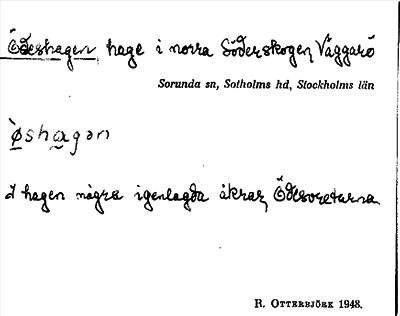 Ödeshagen, hage i norra Söderskogen, Väggarö
Sorunda sn, Sotholms hd, Stockholms län
ø̀shagən
I hagen några igenlagda åkrar, Ödesvretarna
R. OTTERBJÖRK 1948.